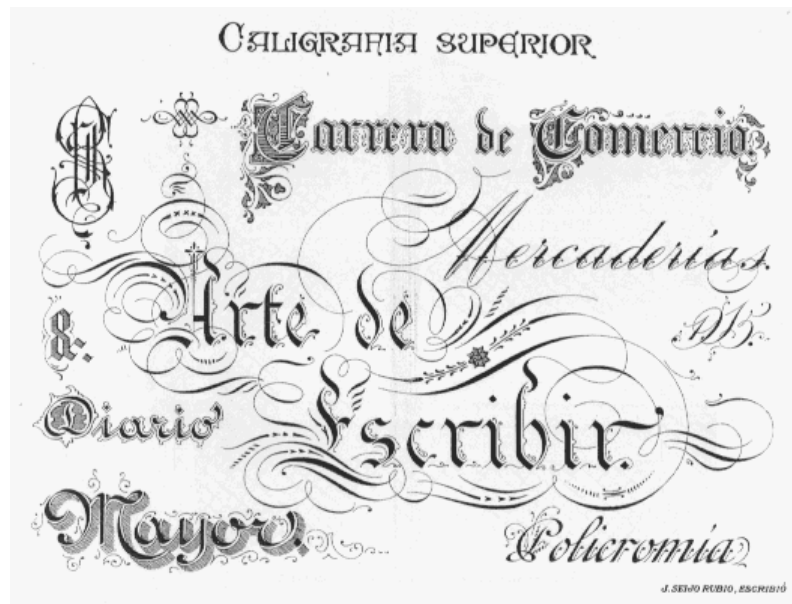 CALIGRAFIA SUPERIOR
Carrera de Comercio
Mercaderías.
Arte de
&.
Escribir.
Diario
Mayor.
Policromía
J. SEIJO RUBIO, ESCRIBIÓ